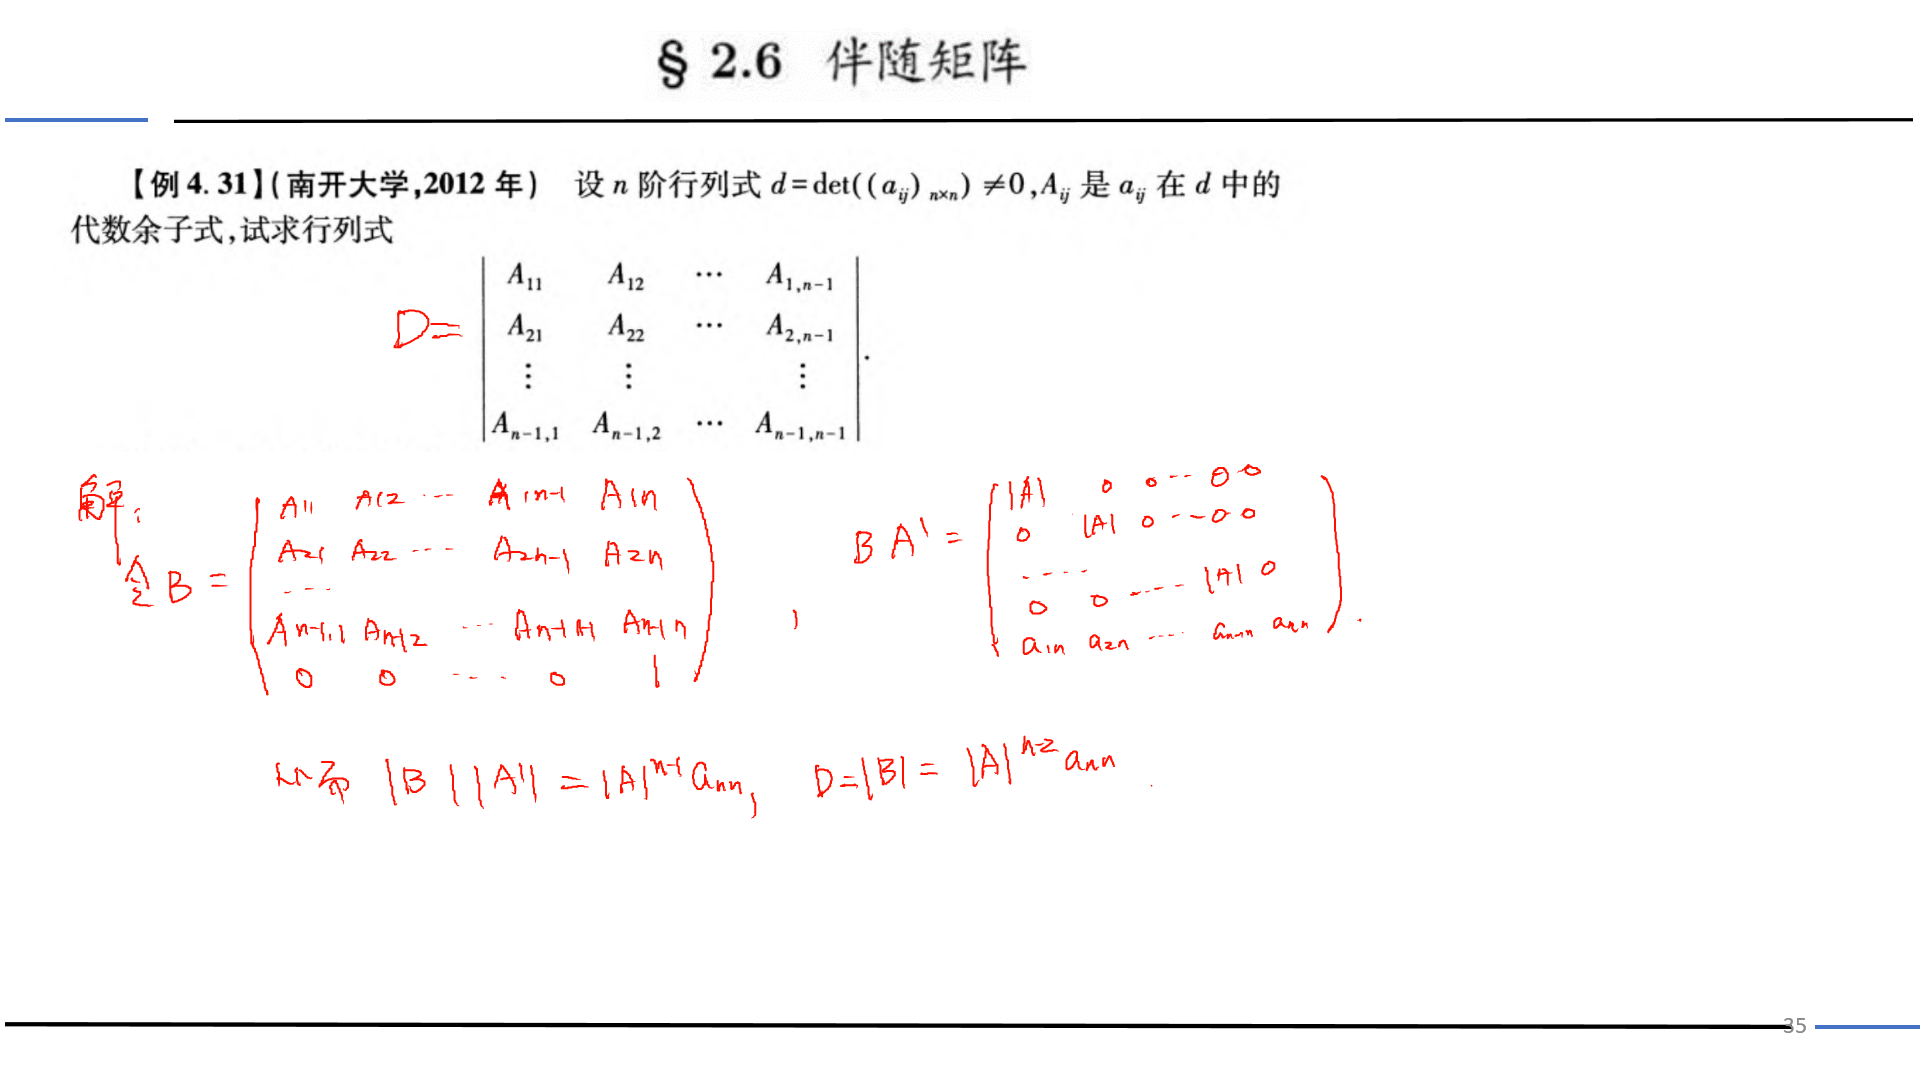 § 2.6 伴随矩阵
【例 4.31】(南开大学,2012 年) 设 n 阶行列式 d=det((a_{ij})_{n×n})≠0,A_{ij} 是 a_{ij} 在 d 中的
代数余子式,试求行列式
D=
A_{11} A_{12} ⋯ A_{1,n-1}
A_{21} A_{22} ⋯ A_{2,n-1}
⋮ ⋮ ⋮
A_{n-1,1} A_{n-1,2} ⋯ A_{n-1,n-1}
.
解:
令 B =
A_{11} A_{12} ⋯ A_{1n-1} A_{1n}
A_{21} A_{22} ⋯ A_{2n-1} A_{2n}
⋯
A_{n-1,1} A_{n-1,2} ⋯ A_{n-1,n-1} A_{n-1,n}
0 0 ⋯ 0 1
,
BA' =
|A| 0 0 ⋯ 0 0
0 |A| 0 ⋯ 0 0
⋯
0 0 ⋯ |A| 0
a_{1n} a_{2n} ⋯ a_{n-1n} a_{nn}
.
从而 |B||A'| = |A|^{n-1} a_{nn}, D=|B| = |A|^{n-2} a_{nn}
35